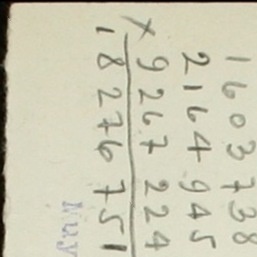 1603738
2164945
x 9267224
18276751